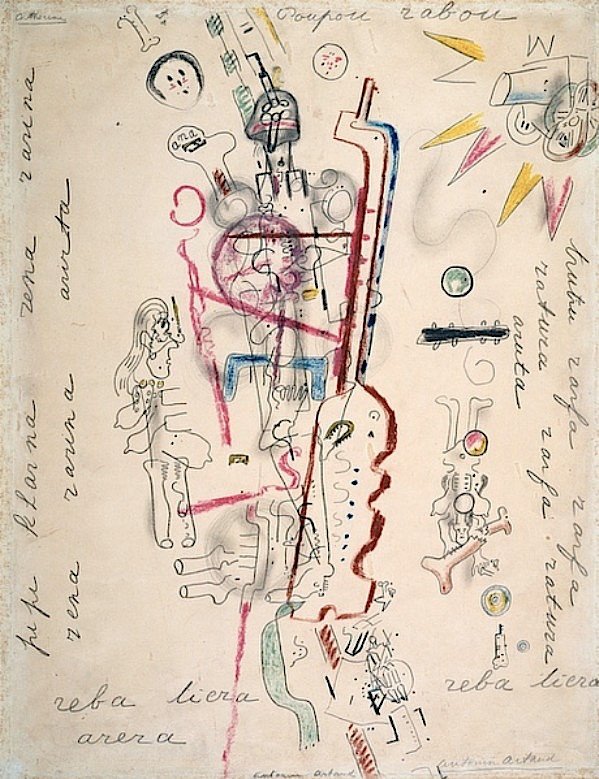 Poupou rabou
ana
pepe klarna rena rarina
rena rarina aurta
brubru rarfa rarfa
ratura rarfa ratura
aruta
reba liera
arera
reba liera
antonin artaud
antonin artaud